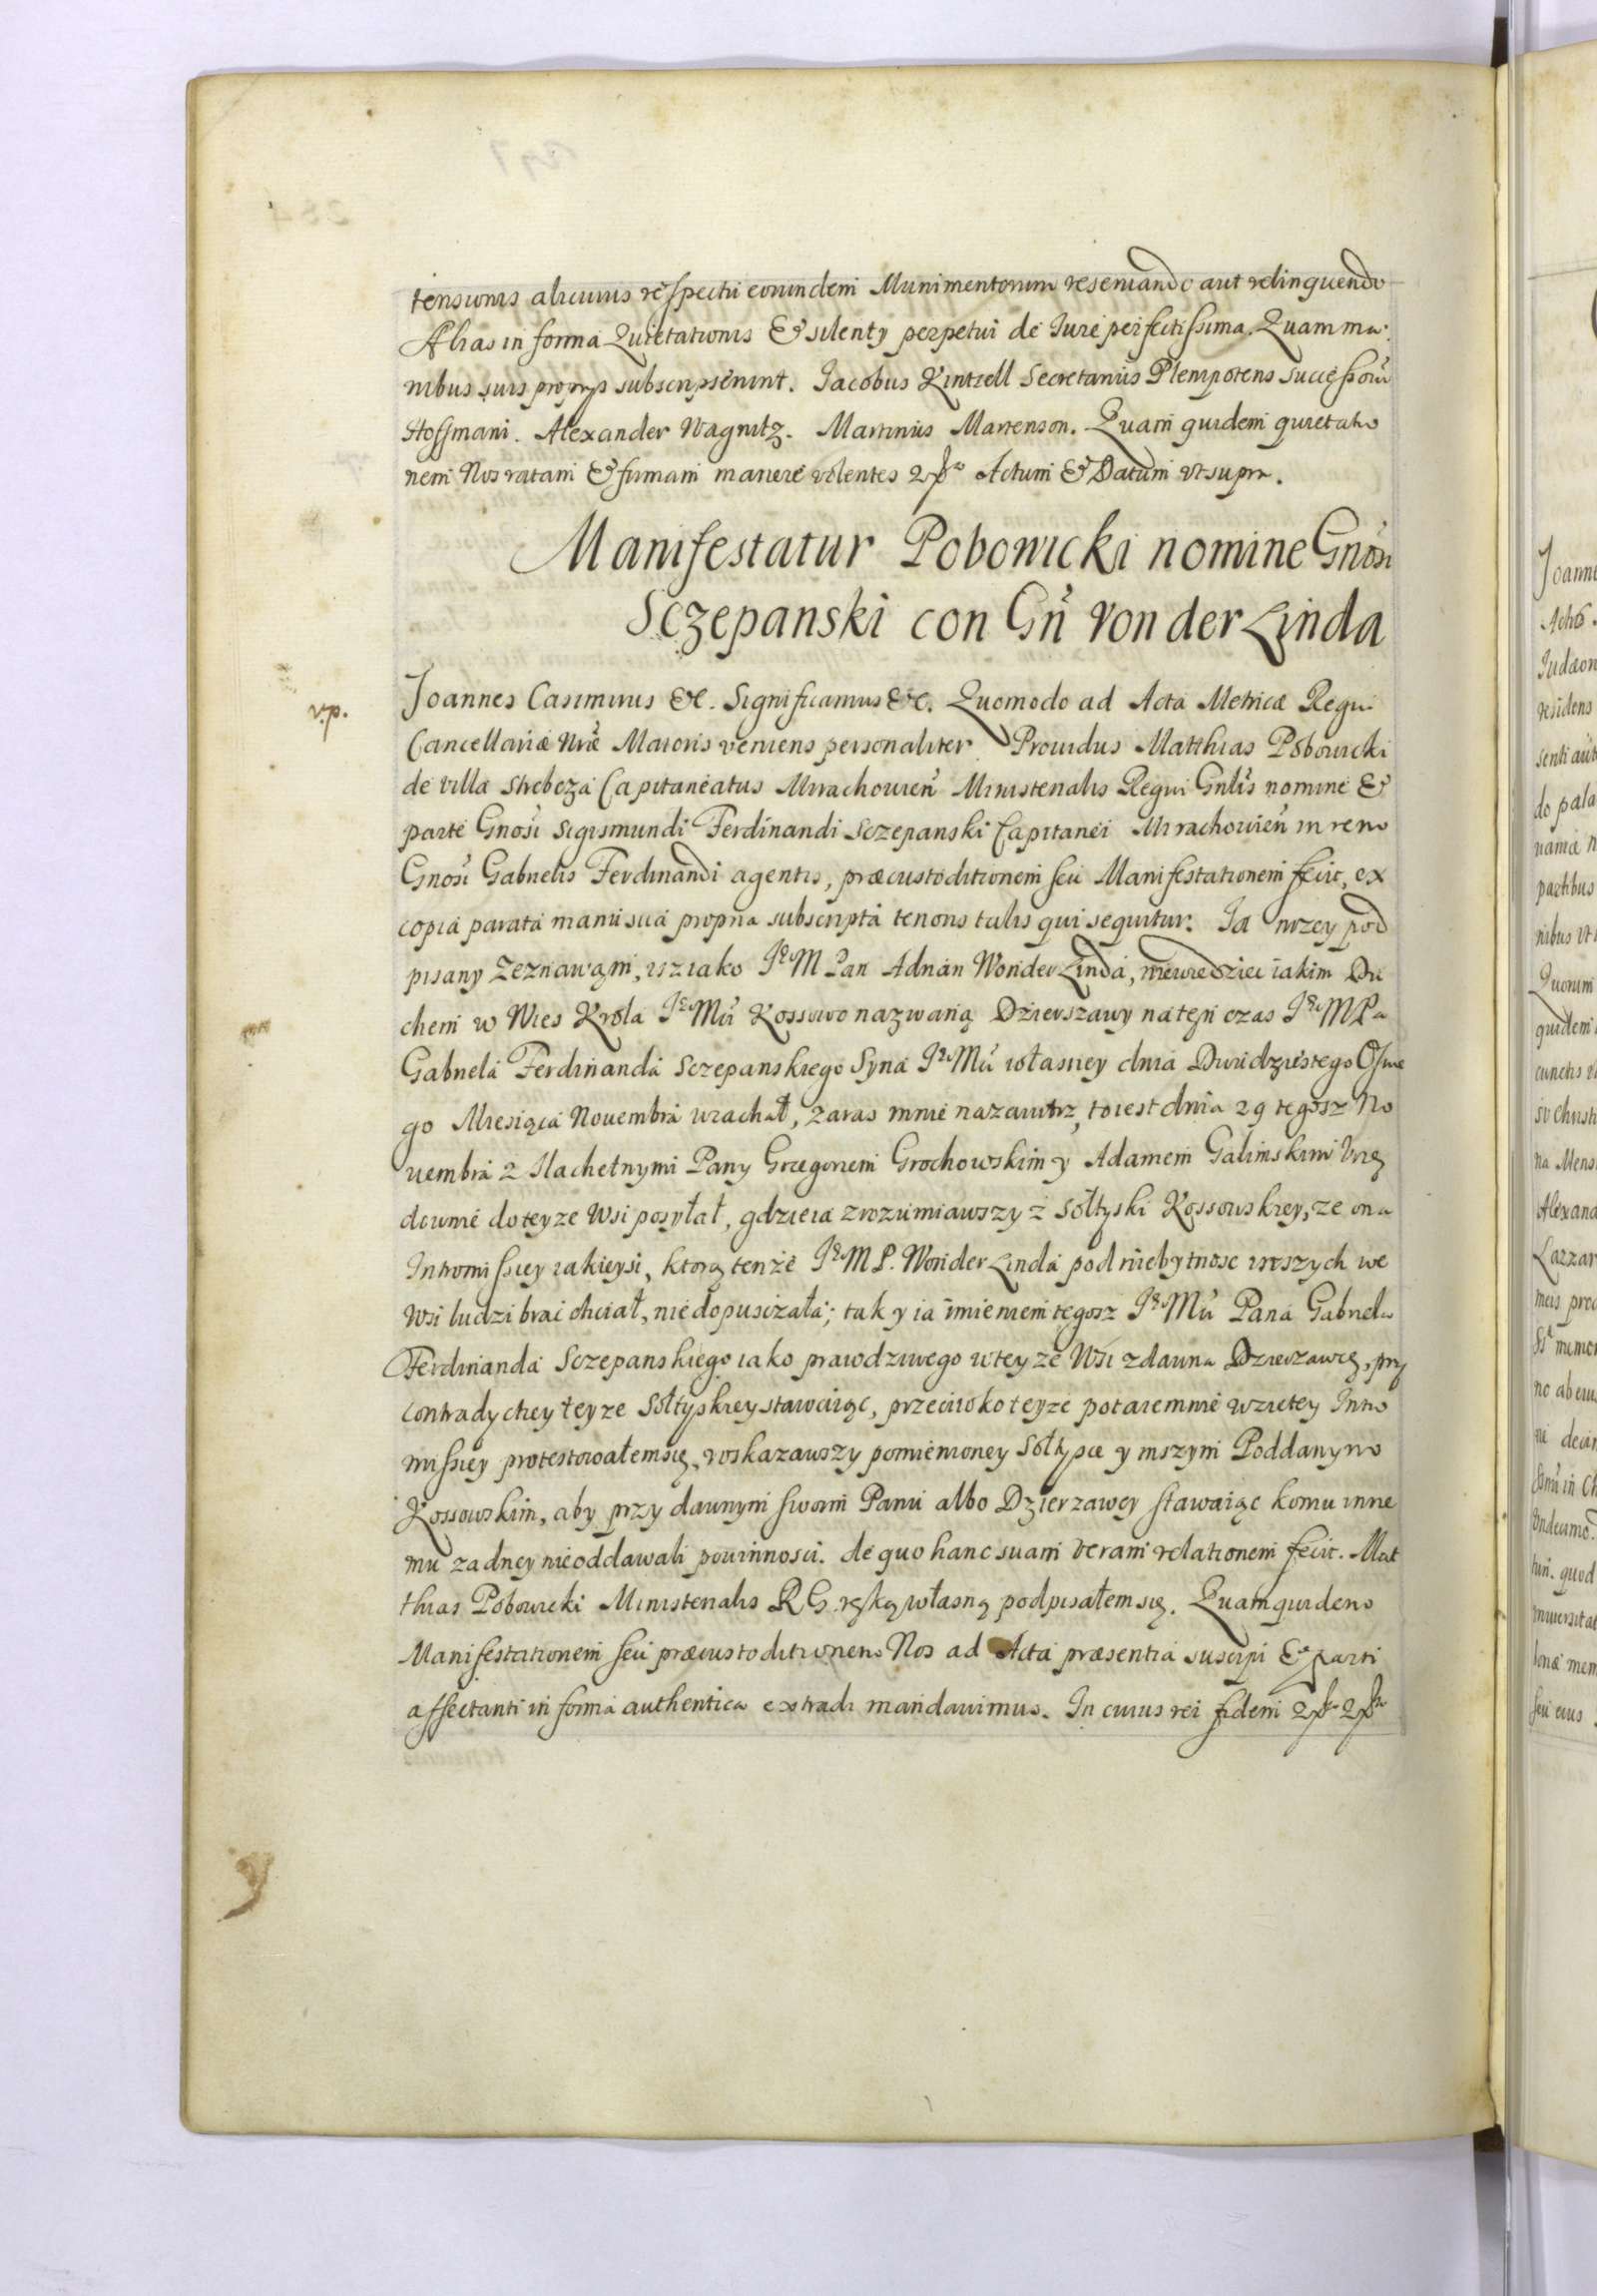 tensionis alicuius respectu eorundem Munimentorum reseruando aut relinquendo
Alias in forma Quietationis & silentÿ perpetui de Iure perfectissima. Quam ma-
nibus suis proprÿs subscripserunt. Iacobus Kintzell Secretarius Plenipotens Successorũ
Hoffmani. Alexander Wagnitz. Martinus Martenson. Quam quidem quietatio
nem Nos ratam & firmam manere volentes Actum & Datum vt supra.
Manifestatur Pobowicki nomine Gnõsi
Sczepanski con Gñ Von der Linda
v.p.
Joannes Casimirus &c. Significamus &c. Quomodo ad Acta Metricæ Regni
Cancellariæ Nræ Maioris veniens personaliter Prouidus Matthias Pobowicki
de villa Strebcza Capitaneatus Mirachouień Ministerialis Regni Gnlis nomine &
parte Gnosi Sigismundi Ferdinandi Sczepanski Capitanei Mirachouień in rem
Gnosi Gabrielis Ferdinandi agentis, præcustoditionem seu Manifestationem fecit, ex
copia parata manu sua propria subscripta tenoris talis qui sequitur. Ia nizey pod
pisany Zeznawam, isz iako Je° M Pan Adrian Wonder Linda, niewiedziec iakim Du
chem w Wies Krola Je° Mũ Kossowo nazwaną Dzierszawy na ten czas Je° M Pa
Gabriela Ferdinanda Sczepanskiego Syna Je° Mũ własney dnia Dwudziestego Osme
go Miesiąca Nouembra wiachał, zaras mnie nazaiutrz, to iest dnia 29 tegosz No
uembra z Slachetnymi Pany Grzegorzem Grochowskim y Adamem Galimskim Vrzę
downie do teyze Wsi posyłał, gdzie ia zrozumiawszy z Sołtyski Kossowskiey, ze ona
Intromissiey iakieysi, ktorą tenże Je° M P. Wonder Linda pod niebytnosc wszych we
Wsi ludzi brać chciał, nie dopuscizała; tak y ia imieniem tegosz Je° Mũ Pana Gabriela
Ferdinanda Sczepanskiego iako prawdziwego w teyze Wsi zdawna Dzierzawcę, przy
contradyckey teyze Sołtyskiey stawaiąc, przeciwko teyze potaiemnie wzietey Intro
missiey protestowałem się, roskazawszy pomienioney Sołtysce y inszym Poddanym
Kossowskim, aby przy dawnym swoim Panu albo Dzierzawcy stawaiąc komu inne
mu zadney nie oddawali powinnosci. de quo hanc suam veram relationem fecit. Mat
thias Pobowicki Ministerialis R G. ręką własną podpisałem się. Quam quidem
Manifestationem seu præcustoditionem Nos ad Acta præsentia suscipi & parti
affectanti in forma authentica extradi mandauimus. In cuius rei fidem